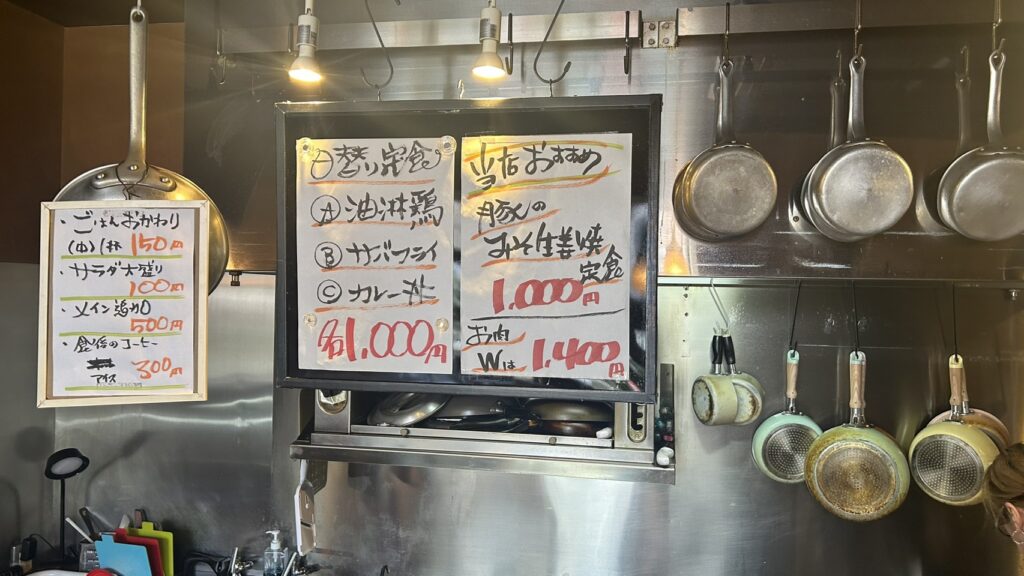 ・ごはんおかわり
(中) 1杯 150円
・サラダ大盛り
100円
・メイン追加
500円
・食後のコーヒー
アイス 300円
日替り定食
Ⓐ 油淋鶏
Ⓑ サバフライ
Ⓒ カレー
各1.000円
当店おすすめ
豚の
みそ生姜焼
定食
1.000円
お肉
Wは 1.400円